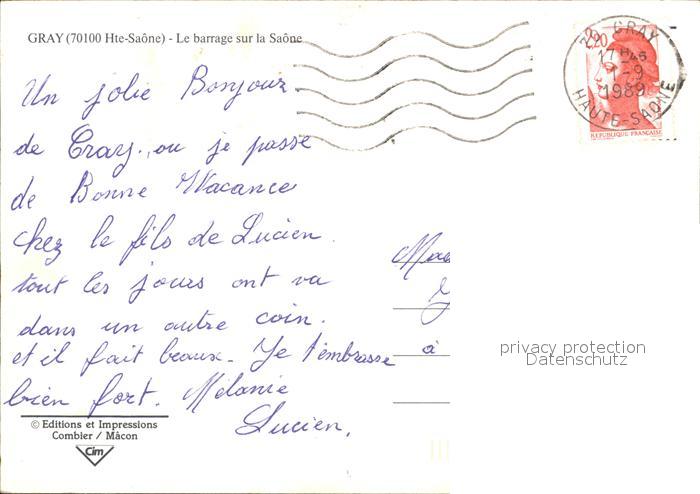 GRAY (70100 Hte-Saône) - Le barrage sur la Saône
2,20
GRAY
17 H 45
-9
1989
HAUTE-SAONE
REPUBLIQUE FRANÇAISE
Un jolie Bonjour
de Gray. ou je passe
de Bonne Vacance
chez le fils de Lucien.
tout les jours ont va
dans un autre coin.
et il fait beaux. Je t'embrasse
bien fort. Mélanie
Lucien.
à
privacy protection
Datenschutz
© Editions et Impressions
Combier / Mâcon
Cim